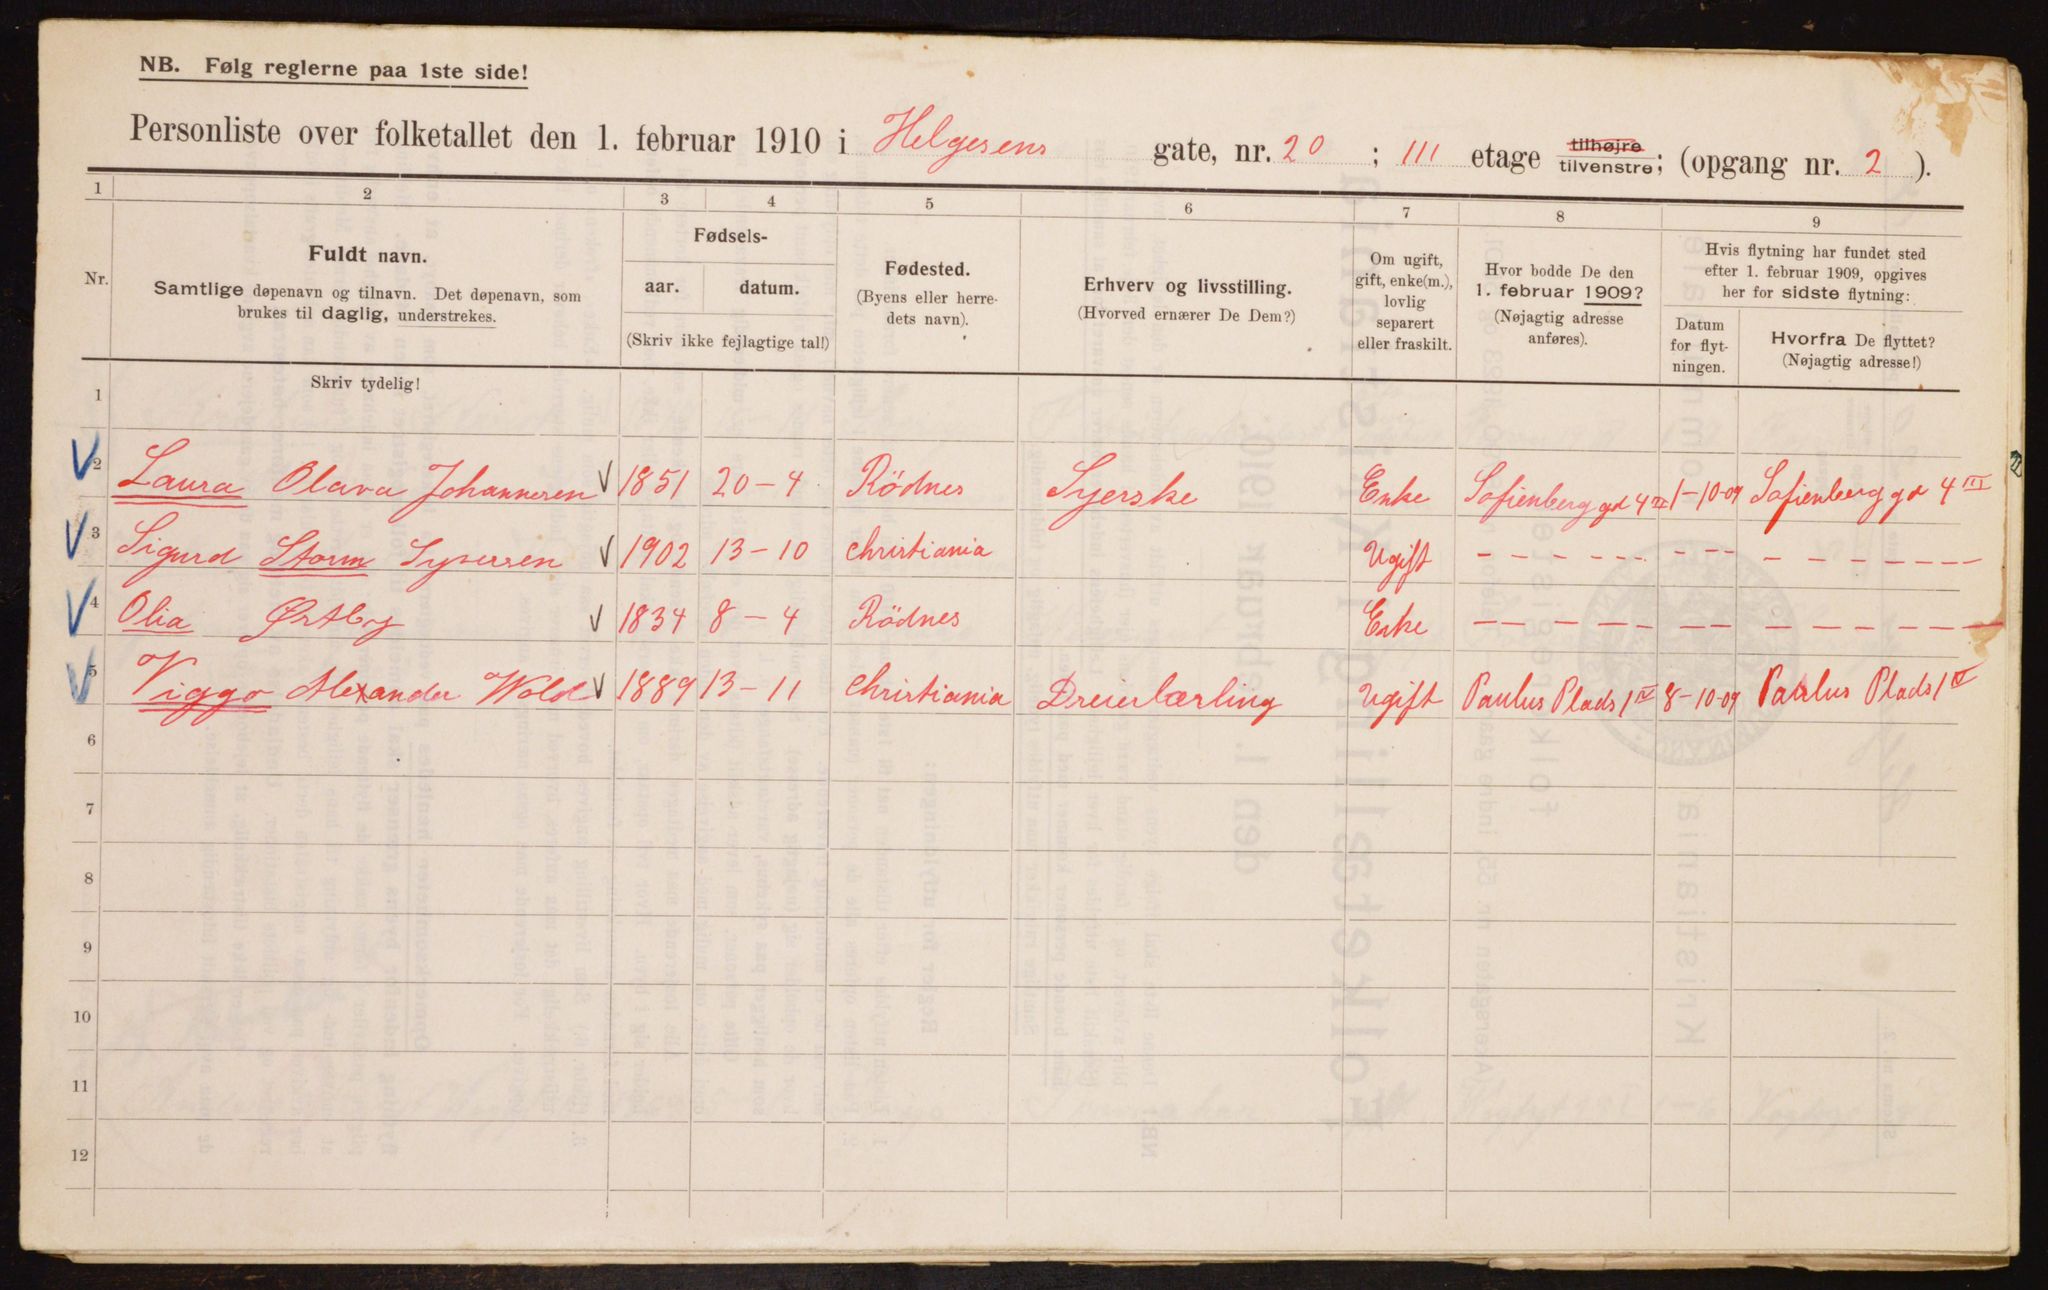 NB. Følg reglerne paa 1ste side!
Personliste over folketallet den 1. februar 1910 i Helgesens gate, nr. 20 ; III etage tilhøjre tilvenstre; (opgang nr. 2 ).
1 2 3 4 5 6 7 8 9
Nr.
Fuldt navn.
Samtlige døpenavn og tilnavn. Det døpenavn, som
brukes til daglig, understrekes.
Fødsels-
aar. datum.
(Skriv ikke fejlagtige tal!)
Fødested.
(Byens eller herre-
dets navn).
Erhverv og livsstilling.
(Hvorved ernærer De Dem?)
Om ugift,
gift, enke(m.),
lovlig
separert
eller fraskilt.
Hvor bodde De den
1. februar 1909?
(Nøjagtig adresse
anføres).
Hvis flytning har fundet sted
efter 1. februar 1909, opgives
her for sidste flytning:
Datum
for flyt-
ningen.
Hvorfra De flyttet?
(Nøjagtig adresse!)
Skriv tydelig!
1
2 Laura Olava Johannesen 1851 20-4 Rödnes Syerske Enke Sofienberg gd 4 III 1-10-09 Sofienberg gd 4 III
3 Sigurd Storm Syversen 1902 13-10 Christiania Ugift - - - - - - - - - - - - - - - -
4 Olia Østby 1834 8-4 Rödnes Enke - - - - - - - - - - - - -
5 Viggo Alexander Wold 1889 13-11 Christiania Dreierlærling Ugift Paulus Plads 1 IV 8-10-09 Paulus Plads 1 IV
6
7
8
9
10
11
12